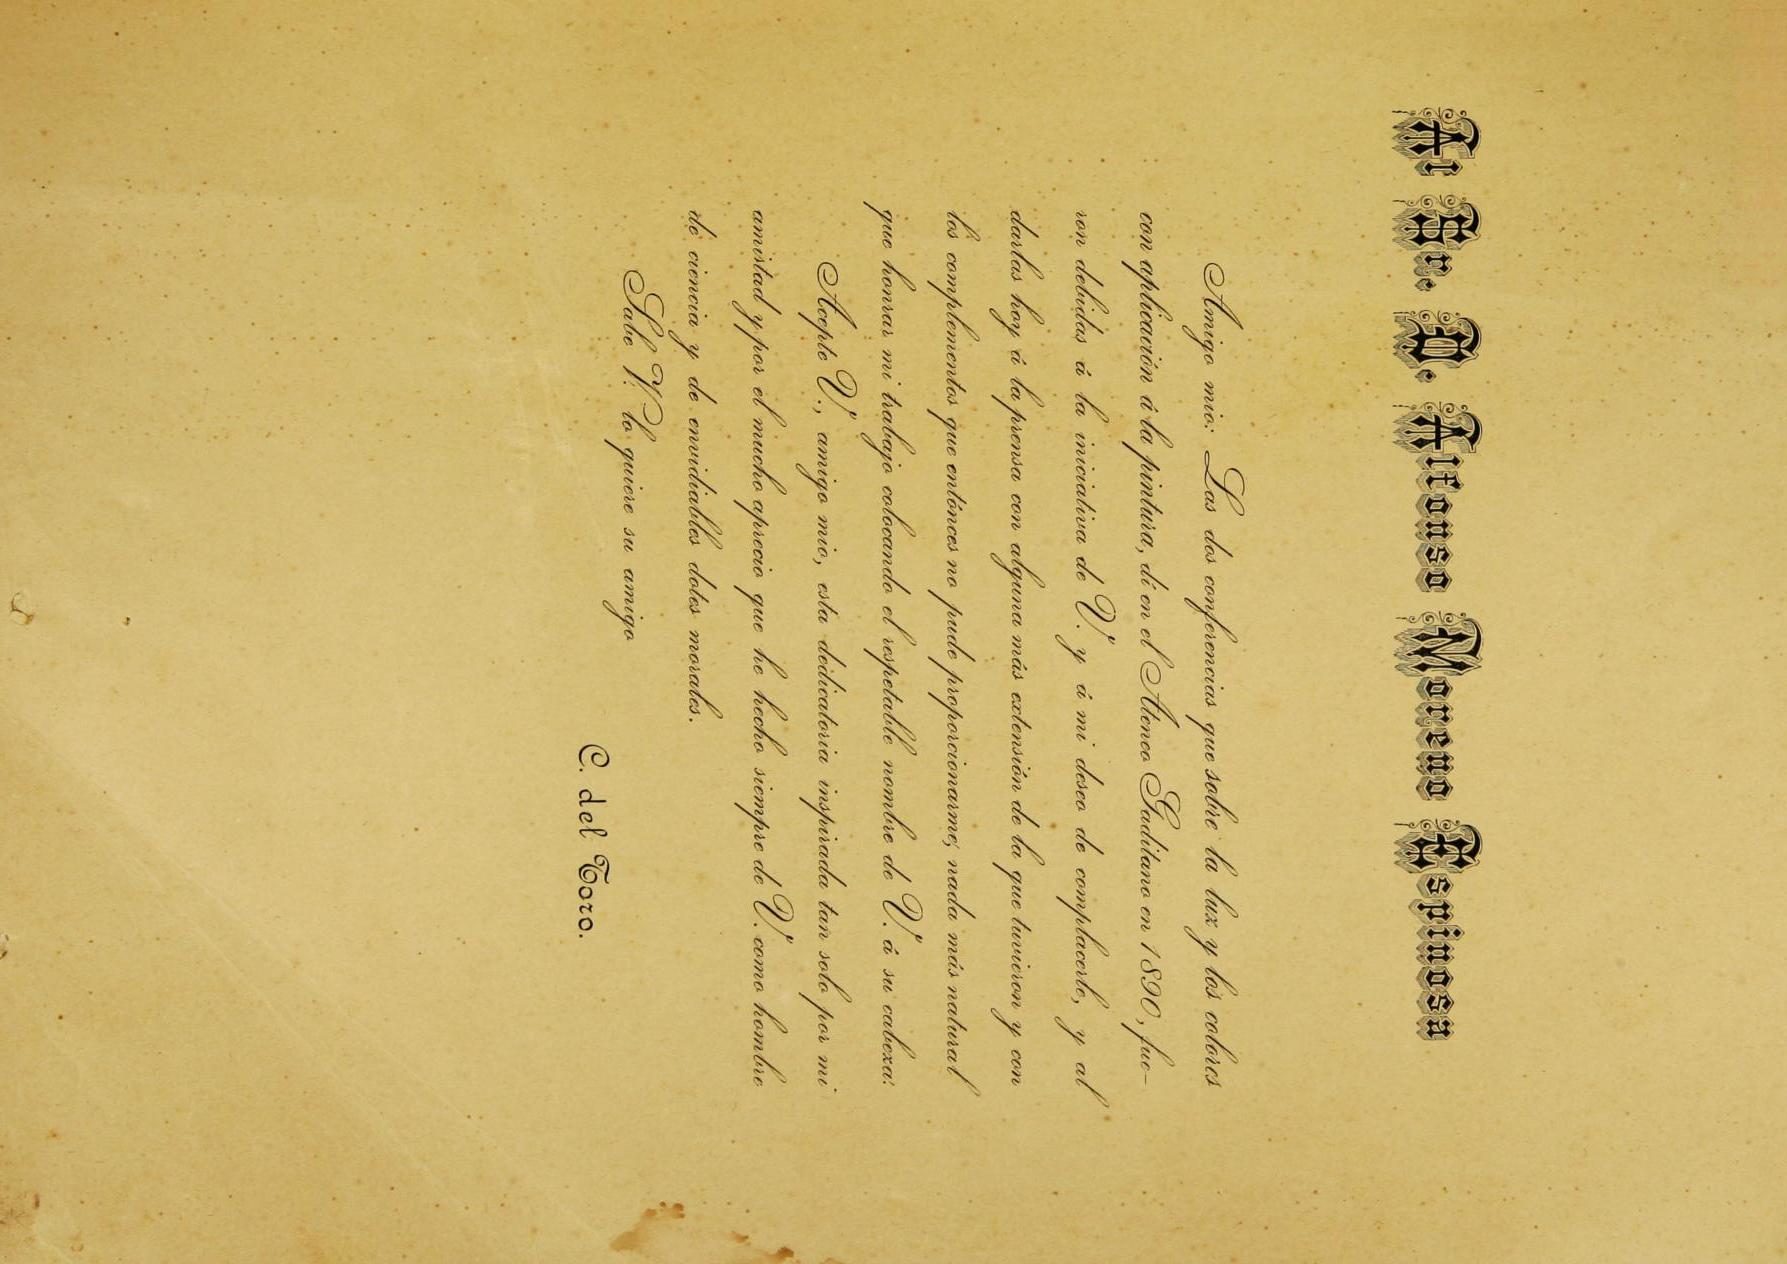 Al Sr. D. Alfonso Moreno Espinosa
Amigo mio: Las dos conferencias que sobre la luz y los colores
con aplicación á la pintura, dí en el Ateneo Gaditano en 1890, fue-
ron debidas á la iniciativa de V. y á mi deseo de complacerle, y al
darlas hoy á la prensa con alguna más extensión de la que tuvieron y con
los complementos que entónces no pude proporcionarme, nada más natural
que honrar mi trabajo colocando el respetable nombre de V. á su cabeza.
Acepte V., amigo mio, esta dedicatoria inspirada tan solo por mi
amistad y por el mucho aprecio que he hecho siempre de V. como hombre
de ciencia y de envidiables dotes morales.
Sabe V. lo quiere su amigo
C. del Toro.